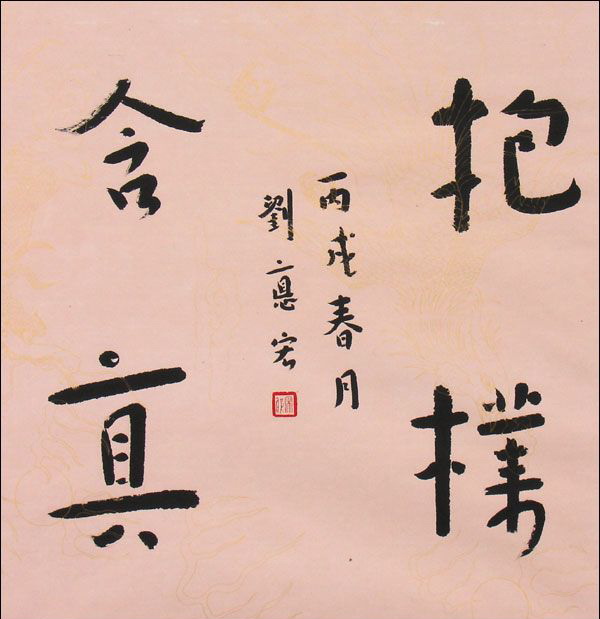 抱樸
含真
丙戌春月
劉德宏